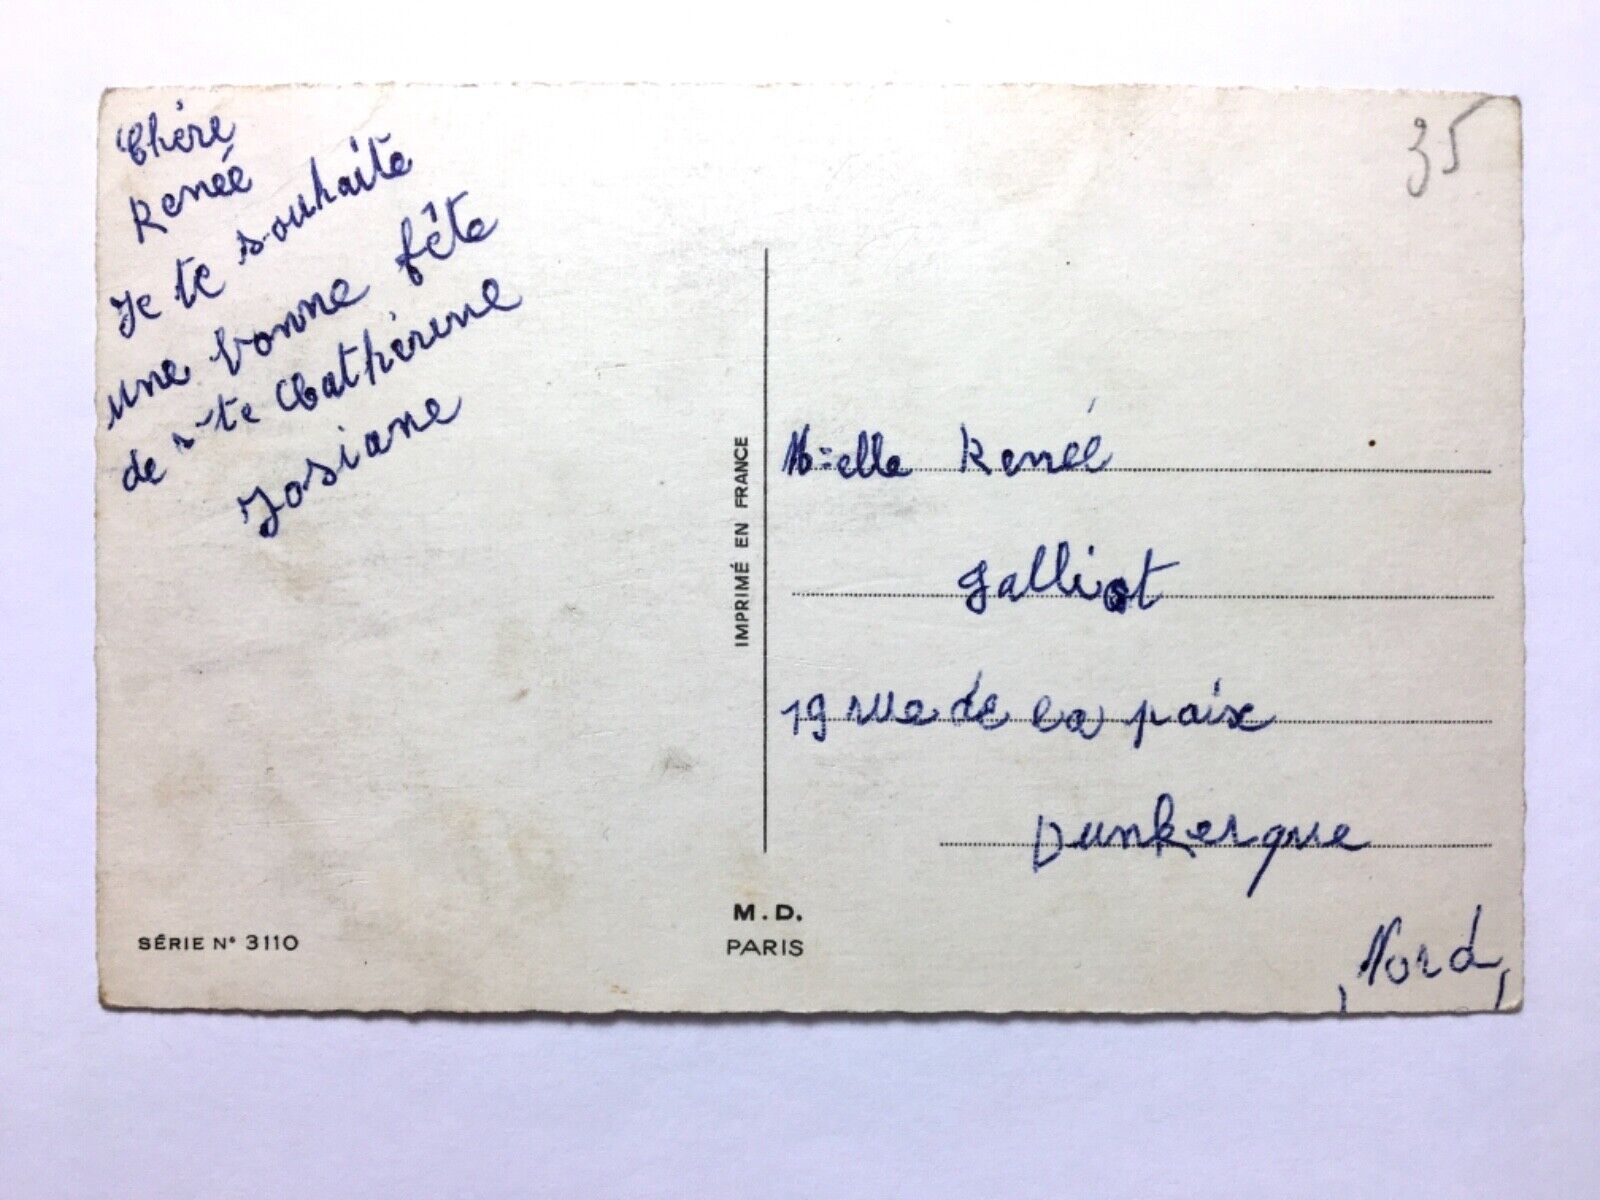 Chère
Renée
Je te souhaite
une bonne fête
de s-te Cathérine
Josiane
35
M-elle Renée
Galliot
19 rue de la paix
Dunkerque
(Nord)
IMPRIMÉ EN FRANCE
M.D.
PARIS
SÉRIE N° 3110